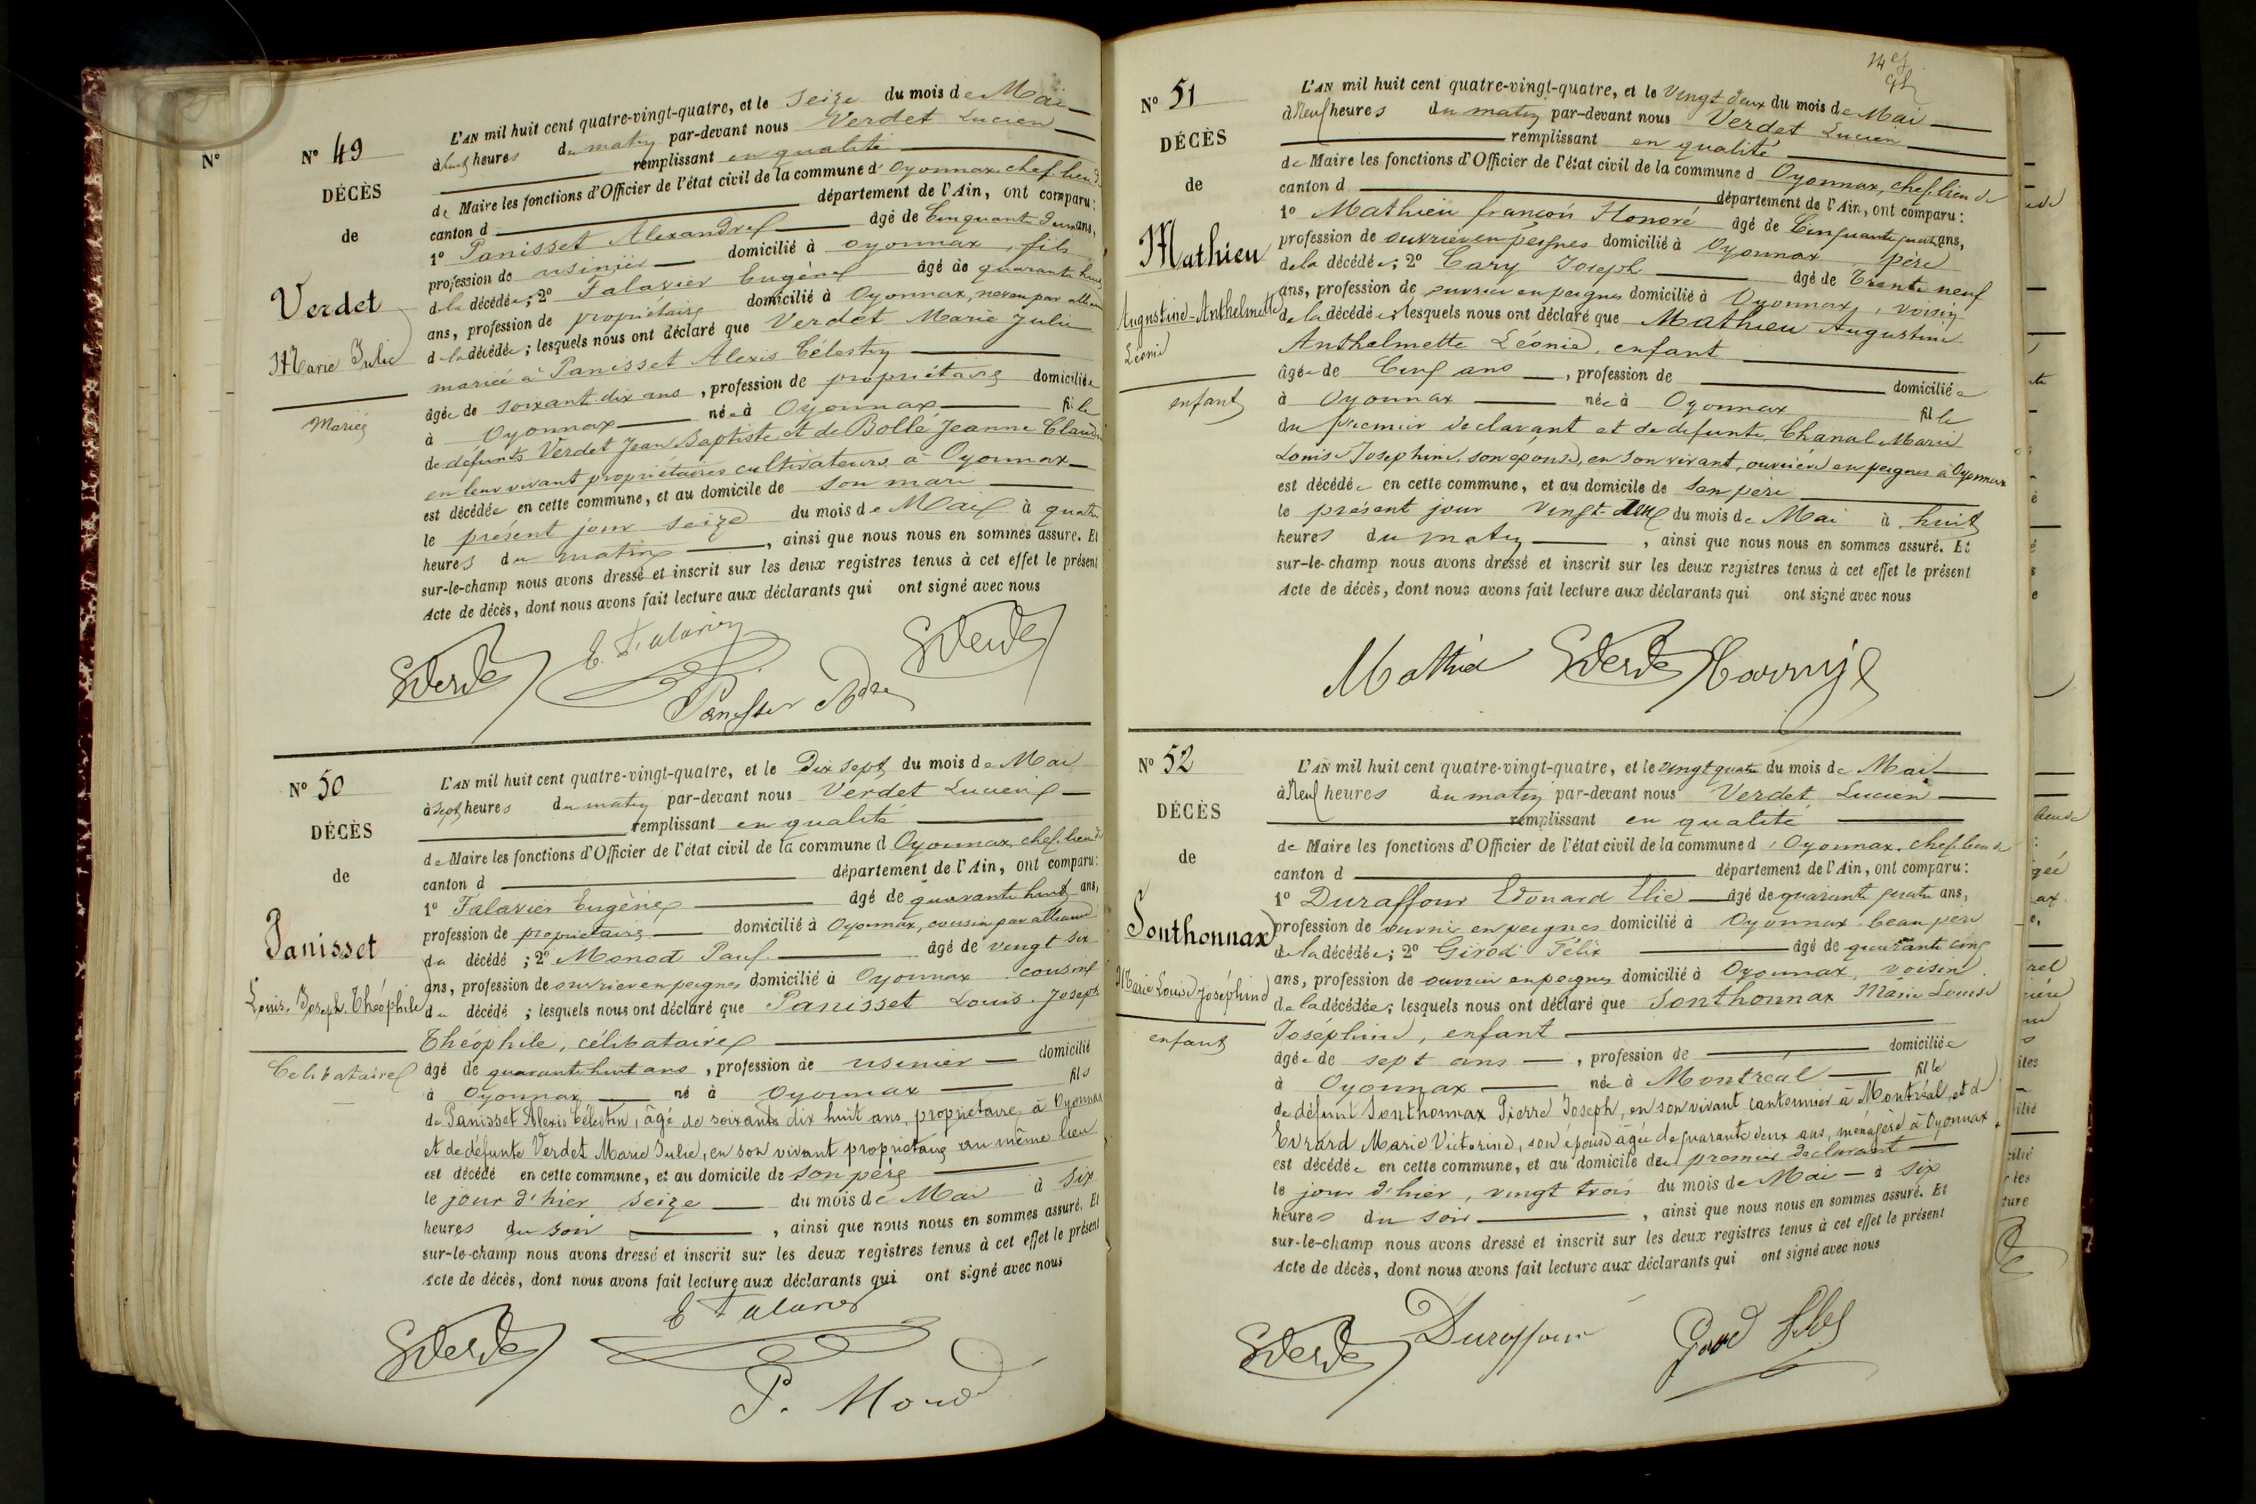 N°
N° 49
DÉCÈS
de
Verdet
Marie Julie
Mariée
L'AN mil huit cent quatre-vingt-quatre, et le seize du mois de Mai
à huit heures du matin par-devant nous Verdet Lucien
remplissant en qualité
de Maire les fonctions d'Officier de l'état civil de la commune d'Oyonnax, chef lieu de
canton d département de l'Ain, ont comparu:
1° Panisset Alexandre âgé de Cinquante deux ans,
profession de usinier domicilié à oyonnax, fils
de la décédée; 2° Talavier Eugène âgé de quarante huit
ans, profession de propriétaire domicilié à Oyonnax, neveu par alliance
de la décédée; lesquels nous ont déclaré que Verdet Marie Julie
mariée à Panisset Alexis Célestin
âgée de soixant dix ans, profession de propriétaire domiciliée
à Oyonnax née à Oyonnax fille
de défunts Verdet Jean Baptiste et de Bollé Jeanne Claudine
en leur vivant propriétaires cultivateurs à Oyonnax
est décédée en cette commune, et au domicile de son mari
le présent jour seize du mois de Mai à quatre
heures du matin, ainsi que nous nous en sommes assuré. Et
sur-le-champ nous avons dressé et inscrit sur les deux registres tenus à cet effet le présent
Acte de décès, dont nous avons fait lecture aux déclarants qui ont signé avec nous
E. Talavier
N° 50
DÉCÈS
de
Panisset
Louis, Joseph, Théophile
Celibataire
L'AN mil huit cent quatre-vingt-quatre, et le Dix sept du mois de Mai
à sept heures du matin par-devant nous Verdet Lucien
remplissant en qualité
de Maire les fonctions d'Officier de l'état civil de la commune d Oyonnax, chef lieu de
canton d département de l'Ain, ont comparu:
1° Talavier Eugène âgé de quarante huit ans,
profession de propriétaire domicilié à Oyonnax, cousin par alliance
du décédé; 2° Monod Paul âgé de vingt six
ans, profession de ouvrier en peignes domicilié à Oyonnax cousin
du décédé; lesquels nous ont déclaré que Panisset Louis Joseph
Théophile, célibataire
âgé de quarante huit ans, profession de usinier domicilié
à Oyonnax né à Oyonnax fils
de Panisset Alexis Célestin, âgé de soixante dix huit ans, propriétaire à Oyonnax
et de défunte Verdet Marie Julie, en son vivant propriétaire au même lieu
est décédé en cette commune, et au domicile de son père
le jour d'hier seize du mois de Mai à six
heures du soir, ainsi que nous nous en sommes assuré. Et
sur-le-champ nous avons dressé et inscrit sur les deux registres tenus à cet effet le présent
Acte de décès, dont nous avons fait lecture aux déclarants qui ont signé avec nous
E Talavier
P. Monod
N° 51
DÉCÈS
de
Mathieu
Augustine-Anthelmette
Léonie
enfant
L'AN mil huit cent quatre-vingt-quatre, et le vingt deux du mois de Mai
à Neuf heures du matin par-devant nous Verdet Lucien
remplissant en qualité
de Maire les fonctions d'Officier de l'état civil de la commune d Oyonnax, chef lieu de
canton d département de l'Ain, ont comparu:
1° Mathieu françois Honoré âgé de Cinquante quatre ans,
profession de ouvrier en peignes domicilié à Oyonnax père
de la décédée; 2° Cary Joseph âgé de Trente neuf
ans, profession de ouvrier en peignes domicilié à Oyonnax, voisin
de la décédée; lesquels nous ont déclaré que Mathieu Augustine
Anthelmette Léonie, enfant
âgée de Cinq ans, profession de domiciliée
à Oyonnax née à Oyonnax fille
du premier déclarant et de defunte Chanal Marie
Louise Josephine, son épouse, en son vivant, ouvrière en peignes à Oyonnax
est décédée en cette commune, et au domicile de son père
le présent jour vingt-deux du mois de Mai à huit
heures du matin, ainsi que nous nous en sommes assuré. Et
sur-le-champ nous avons dressé et inscrit sur les deux registres tenus à cet effet le présent
Acte de décès, dont nous avons fait lecture aux déclarants qui ont signé avec nous
N° 52
DÉCÈS
de
Sonthonnax
Marie Louise Joséphine
enfant
L'AN mil huit cent quatre-vingt-quatre, et le vingt quatre du mois de Mai
à Neuf heures du matin par-devant nous Verdet Lucien
remplissant en qualité
de Maire les fonctions d'Officier de l'état civil de la commune d'Oyonnax, chef lieu de
canton d département de l'Ain, ont comparu:
1° Duraffour Edouard Elie âgé de quarante quatre ans,
profession de ouvrier en peignes domicilié à Oyonnax beau père
de la décédée; 2° Girod Félix âgé de quarante cinq
ans, profession de ouvrier en peignes domicilié à Oyonnax, voisin
de la décédée; lesquels nous ont déclaré que Sonthonnax Marie Louise
Joséphine, enfant
âgée de sept ans, profession de domiciliée
à Oyonnax née à Montréal fille
de défunt Sonthonnax Pierre Joseph, en son vivant cantonnier à Montréal, et de
Evrard Marie Victorine, son épouse âgée de quarante deux ans, ménagère à Oyonnax
est décédée en cette commune, et au domicile du premier déclarant
le jour d'hier, vingt trois du mois de Mai à six
heures du soir, ainsi que nous nous en sommes assuré. Et
sur-le-champ nous avons dressé et inscrit sur les deux registres tenus à cet effet le présent
Acte de décès, dont nous avons fait lecture aux déclarants qui ont signé avec nous
Duraffour